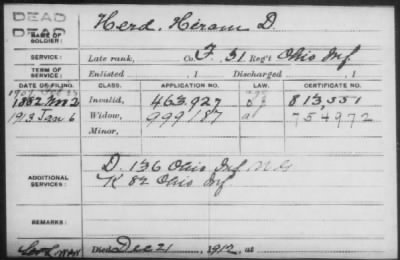 DEAD
DEAD
NAME OF SOLDIER: Herd, Hiram D.
SERVICE: Late rank, Co. F. 31 Reg't Ohio Inf
TERM OF SERVICE: Enlisted , 1 Discharged , 1
DATE OF FILING. CLASS. APPLICATION NO. LAW. CERTIFICATE NO.
1882 Nov 2 Invalid, 463,927 813,551
1913 Jan 6 Widow, 999187 754972
Minor,
ADDITIONAL SERVICES: D. 136 Ohio Inf N.G.
K 82 Ohio Inf
REMARKS:
Died Dec 21 1912, at